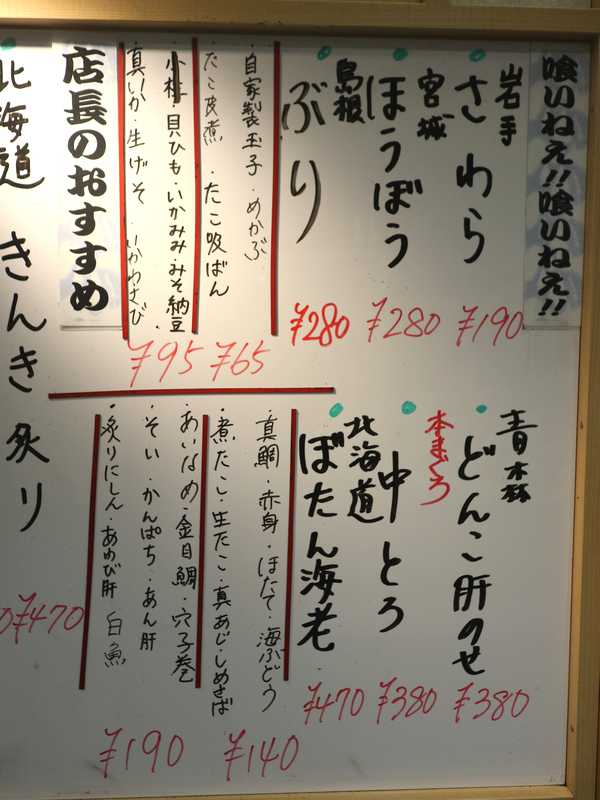 喰いねえ!!喰いねえ!!
岩手
さわら
¥190
宮城
ほうぼう
¥280
島根
ぶり
¥280
・自家製玉子・めかぶ
・たこ皮煮・たこ吸ばん
¥65
・小柱・貝ひも・いかみみ・みそ納豆
・真いか・生げそ・いかわさび
¥95
店長のおすすめ
青木
どんこ肝のせ
¥380
本まぐろ
中とろ
¥380
北海道
ぼたん海老
¥470
・真鯛・赤身・ほたて・海ぶどう
・煮たこ・生たこ・真あじ・しめさば
¥140
・あいなめ・金目鯛・穴子巻
・そい・かんぱち・あん肝
・炙りにしん・あわび肝 白魚
¥190
北海道
きんき炙り
¥470